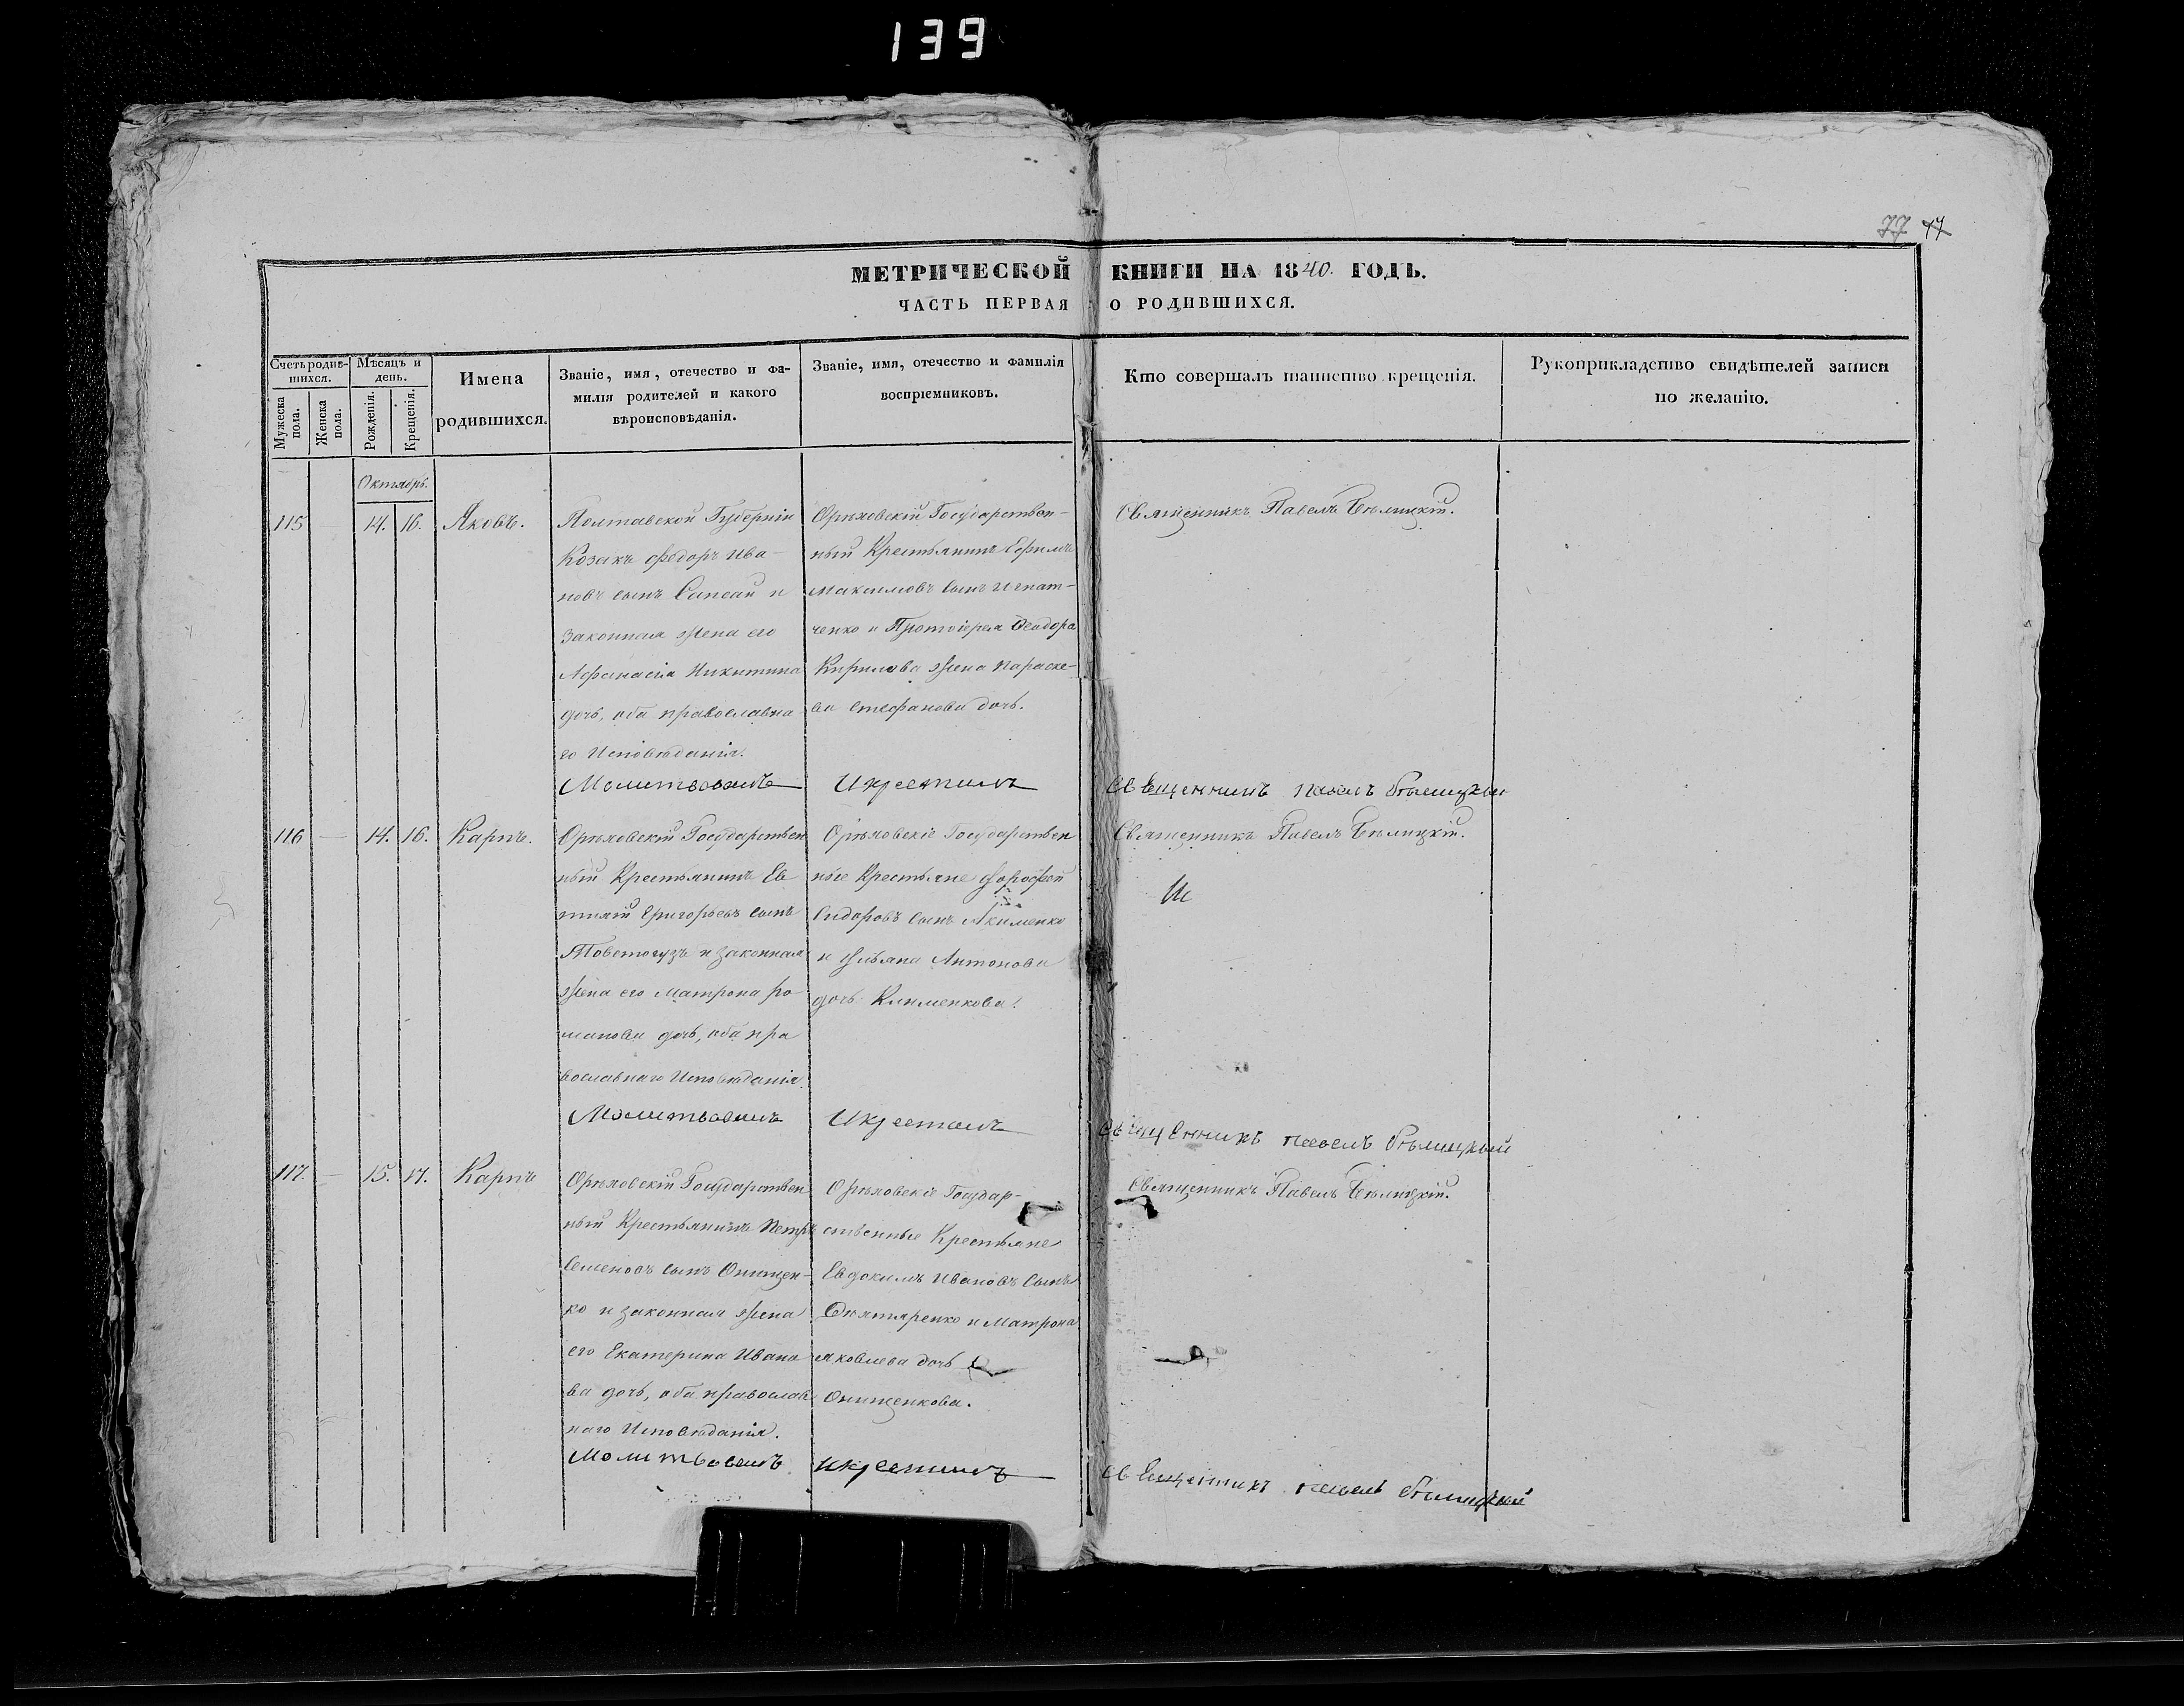 139
77 77
МЕТРИЧЕСКОЙ КНИГИ НА 1840. ГОДЪ.
ЧАСТЬ ПЕРВАЯ О РОДИВШИХСЯ.
Счетъ родив-
шихся.
Мужеска пола.
Женска пола.
Мѣсяцъ и
день.
Рожденія.
Крещенія.
Имена
родившихся.
Званіе, имя, отечество и фа-
милія родителей и какого
вѣроисповѣданія.
Званіе, имя, отечество и фамилія
воспріемниковъ.
Кто совершалъ таинство крещенія.
Рукоприкладство свидѣтелей записи
по желанію.
Октябрь.
115 — 14. 16. Яковъ.
Полтавской Губерніи
Козакъ Федоръ Ива-
новъ сынъ Сапсай и
законная жена его
Афанасія Никитина
дочь, оба православна-
го Исповѣданія.
Орѣховскій Государствен-
ный Крестьянинъ Ефимъ
Максимовъ сынъ Игнат-
ченко и Протоіерея Феодора
Кирилова жена Параске-
ва Стефанова дочь.
Священникъ Павелъ Бѣлицкій.
Молитвовалъ Икрестилъ
Павелъ Бѣлицкий
116 — 14. 16. Карпъ.
Орѣховскій Государствен
ный Крестьянинъ Ев
тихій Григорьевъ сынъ
Товстогузъ и законная
жена его Матрона Ро-
манова дочь, оба пра
вославнаго Исповѣданія.
Орѣховскіе Государствен
ные Крестьяне
Сидоровъ сынъ Акименко
и Ульяна Антонова
дочь Клименкова.
Священникъ Павелъ Бѣлицкій.
Молитвовалъ Икрестилъ
Павелъ Бѣлицкый
117. — 15. 17. Карпъ
Орѣховскій Государствен
ный Крестьянинъ Петръ
Семеновъ сынъ Онищен-
ко и законная жена
его Екатерина Ивано
ва дочь, оба православ
наго Исповѣданія.
Орѣховскіе Государ-
ственные Крестьяне
Евдокимъ Ивановъ Сынъ
и Матрона
Яковлева дочь
Онищенкова.
Священникъ Павелъ Бѣлицкій.
Молитвовалъ Икрестилъ
Павелъ Бѣлицкий